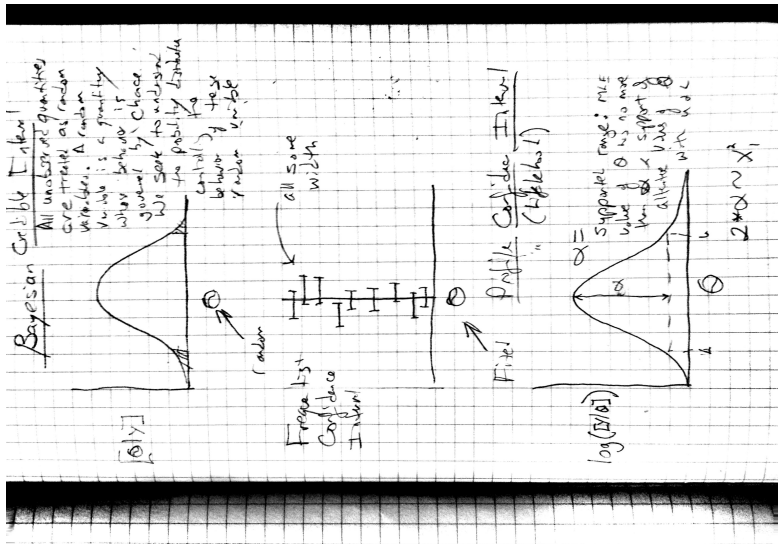 Bayesian Credible Interval
All unobserved quantities
are treated as random
variables. A random
variable is a quantity
whose behavior is
governed by chance.
We seek to understand
the probability distribution
controlling the
behavior of these
random variable
[θ|y]
θ
random
Frequentist
Confidence
Interval
all same
width
θ
Fixed
Profile Confidence Interval
(likelihood)
α =
Supported range: MLE
value of θ has no more
than α support of
alternative values of θ
with
log([y|θ])
α
θ
2*α ~ χ²₁